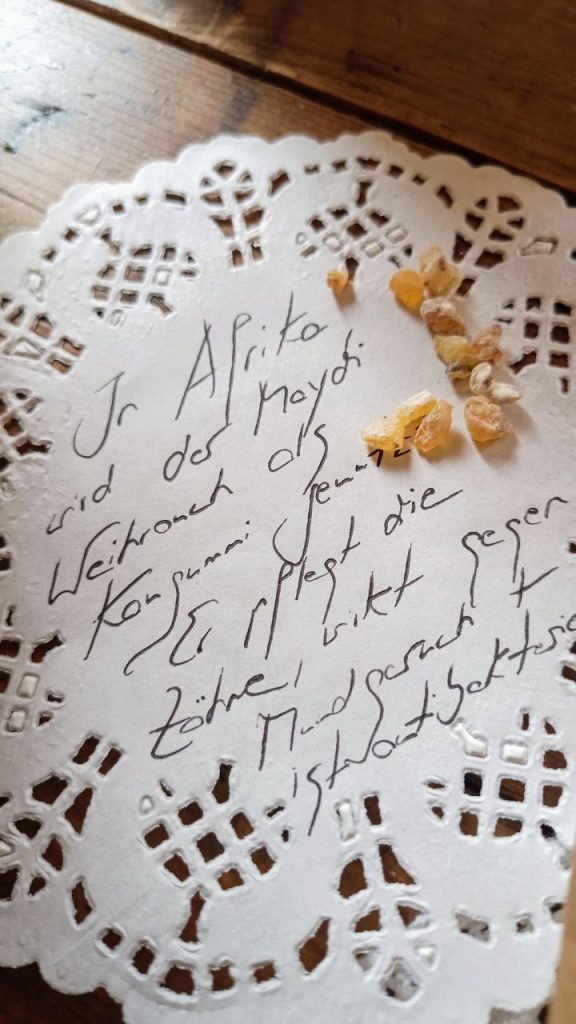 In Afrika
wird der Maydi
Weihrauch als
Kaugummi genutzt
Er pflegt die
Zähne, wirkt gegen
Mundgeruch +
ist antibakterie